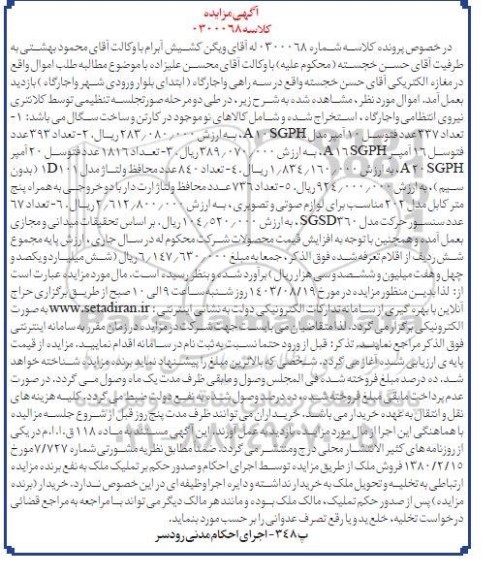 آگهی مزایده
کلاسه ۰۳۰۰۰۶۸
در خصوص پرونده کلاسه شماره ۰۳۰۰۰۶۸ له آقای ویگن کشیش آبرام با وکالت آقای محمود بهشتی به
طرفیت آقای حسن خجسته (محکوم علیه) با وکالت آقای محسن علیزاده با موضوع مطالبه طلب اموال واقع
در مغازه الکتریکی آقای حسن خجسته واقع در سه راهی واجارگاه (ابتدای بلوار ورودی شهر واجارگاه) بازدید
بعمل آمد. اموال مورد نظر، مشاهده شده به شرح زیر، در طی دو مرحله صورتجلسه تنظیمی توسط کلانتری
نیروی انتظامی واجارگاه، استخراج شده و شامل کالاهای نو موجود در کارتن و ساخت سگال می باشد: ۱-
تعداد ۲۳۷ عدد فتوسل ۱۰ آمپر مدل A۱۰ SGPH، به ارزش ۲۸۳/۰۸۰/۰۰۰ ریال. ۲- تعداد ۳۹۳ عدد
فتوسل ۱۶ آمپر A۱۶ SGPH، به ارزش ۳۸۹/۰۷۰/۰۰۰ ریال. ۳- تعداد ۱۸۱۶ عدد فتوسل ۲۰ آمپر
A۲۰ SGPH، به ارزش ۱/۸۳۴/۱۶۰/۰۰۰ ریال. ۴- تعداد ۸۴۰ عدد محافظ ولتاژ مدل ۱D۱۰۱ (بدون
سیم)، به ارزش ۹۲۴/۰۰۰/۰۰۰ ریال. ۵- تعداد ۷۳۶ عدد محافظ ولتاژ ارت دار با دو خروجی به همراه پنج
متر کابل مدل ۲۰۲ مناسب برای لوازم صوتی و تصویری، به ارزش ۲/۶۱۲/۸۰۰/۰۰۰ ریال. ۶- تعداد ۶۷
عدد سنسور حرکت مدل SGSD۳۶۰، به ارزش ۱۰۴/۵۲۰/۰۰۰ ریال. بر اساس تحقیقات میدانی و مجازی
بعمل آمده و همچنین با توجه به افزایش قیمت محصولات شرکت محکوم له در سال جاری، ارزش پایه مجموع
شش ردیف از اقلام تعرفه شده فوق الذکر، جمعا به مبلغ ۶/۱۴۷/۶۳۰/۰۰۰ ریال (شش میلیارد و یکصد و
چهل و هفت میلیون و ششصد و سی هزار ریال) برآورد شده و بنظر رسیده است. مال مورد مزایده عبارت است
از: لذا بدین منظور مزایده در مورخ ۱۴۰۳/۰۸/۱۹ روز شنبه ساعت ۹ الی ۱۰ صبح از طریق برگزاری حراج
آنلاین با بهره گیری از سامانه تدارکات الکترونیکی دولت به نشانی اینترنتی: www.setadiran.ir به صورت
الکترونیکی برگزار می گردد. لذا متقاضیان می بایست جهت شرکت در مزایده در زمان مقرر به سامانه اینترنتی
فوق الذکر مراجع نمایند. تذکر: قبل از ورود حتما نسبت به ثبت نام در سامانه اقدام نمایید. مزایده از قیمت
پایه ی ارزیابی شده آغاز می گردد. شخصی که بالاترین مبلغ را پیشنهاد نماید برنده مزایده شناخته خواهد
شد. ده درصد مبلغ فروخته شده فی المجلس وصول و مابقی ظرف مدت یک ماه وصول می گردد، در صورت
عدم پرداخت مابقی مبلغ فروخته شده، ده درصد وصول شده به نفع دولت ضبط می گردد. کلیه هزینه های
نقل و انتقال به عهده خریدار می باشد. خریداران می توانند ظرف مدت پنج روز قبل از شروع جلسه مزایده
با هماهنگی این اجرا از مال مورد مزایده، بازدید به عمل آورند. این آگهی مستند به ماده ۱۱۸ ق.ا.ا.م در یکی
از روزنامه های کثیر الانتشار محلی درج و منتشر می گردد. ضمنا مطابق نظریه مشورتی شماره ۷/۷۲۷ مورخ
۱۳۸۰/۲/۱۵ فروش ملک از طریق مزایده توسط اجرای احکام و صدور حکم بر تملیک ملک به نفع برنده مزایده
ارتباطی به تخلیه و تحویل ملک به خریدار نداشته و دایره اجرا وظیفه ای در این خصوص ندارد. خریدار (برنده
مزایده) پس از صدور حکم تملیک، مالک ملک بوده و مانند هر مالک دیگر می تواند با مراجعه به مراجع قضائی
درخواست تخلیه، خلع ید و یا رفع تصرف عدوانی را بر حسب مورد بنماید.
پ۳۴۸- اجرای احکام مدنی رودسر